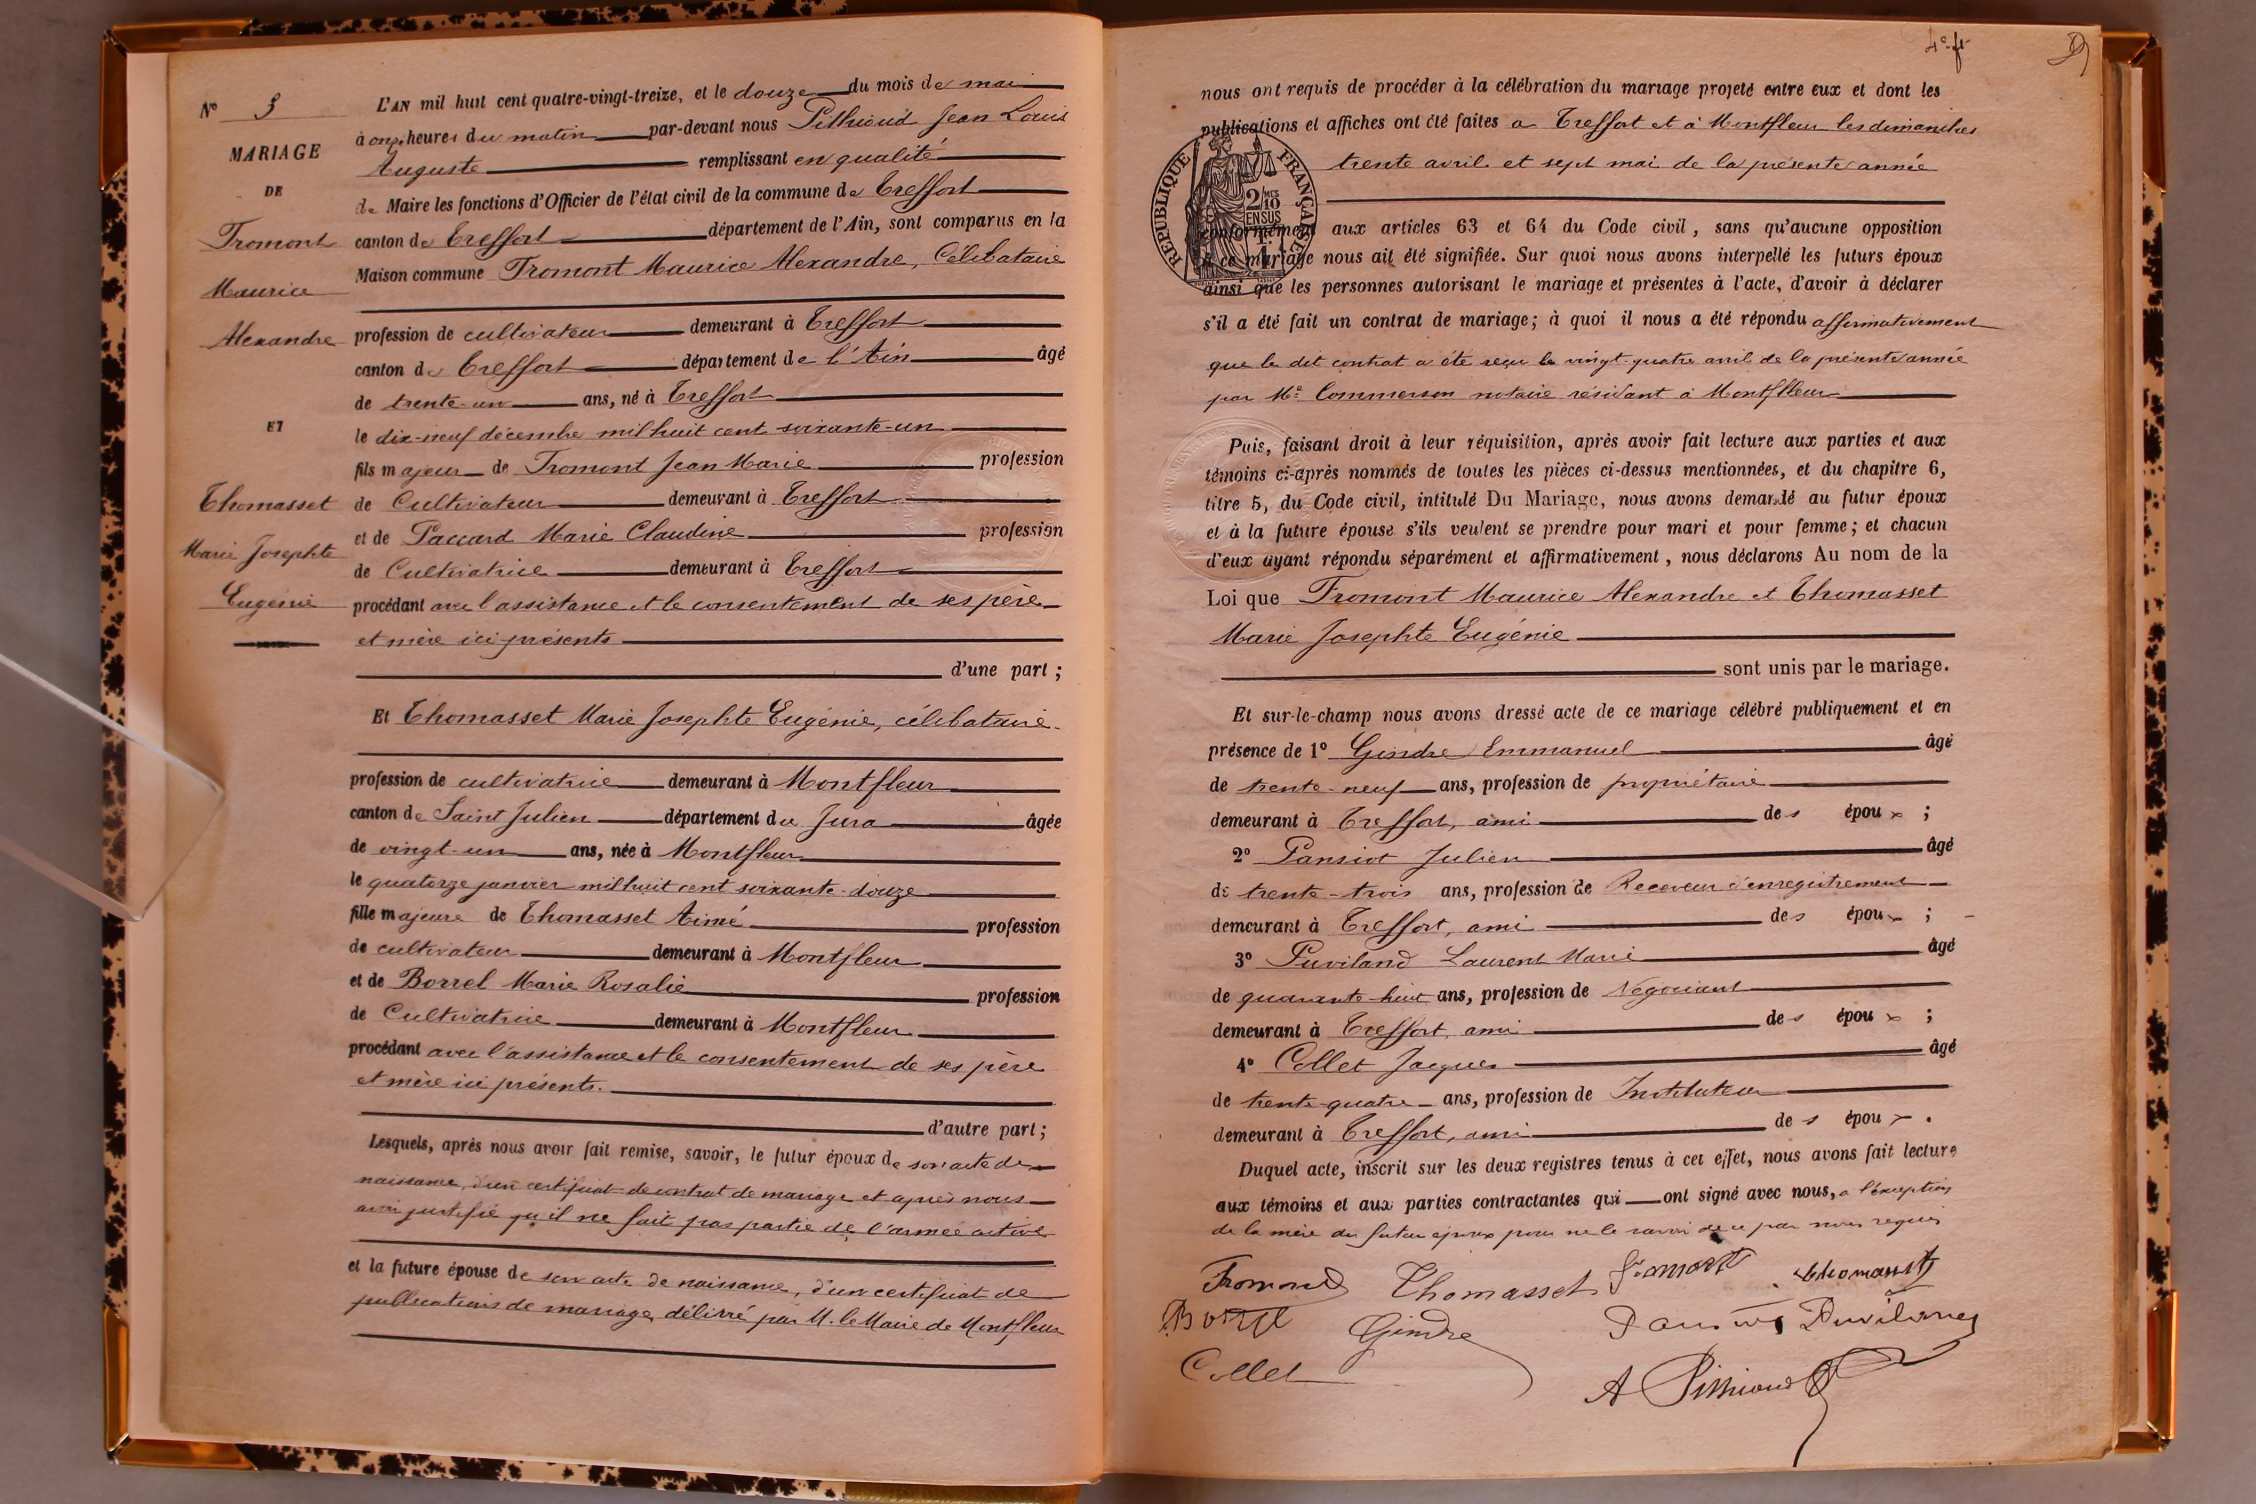 N° 5
MARIAGE
DE
Fromont
Maurice
Alexandre
ET
Thomasset
Marie Josephte
Eugénie
L'AN mil huit cent quatre-vingt-treize, et le douze du mois de mai
à onze heures du matin par-devant nous Pithioud Jean Louis
Auguste remplissant en qualité
de Maire les fonctions d'Officier de l'état civil de la commune de Treffort
canton de Treffort département de l'Ain, sont comparus en la
Maison commune Fromont Maurice Alexandre, Célibataire
profession de cultivateur demeurant à Treffort
canton de Treffort département de l'Ain âgé
de trente-un ans, né à Treffort
le dix-neuf décembre mil huit cent soixante-un
fils majeur de Fromont Jean Marie profession
de Cultivateur demeurant à Treffort
et de Paccard Marie Claudine profession
de Cultivatrice demeurant à Treffort
procédant avec l'assistance et le consentement de ses père
et mère ici présents
d'une part ;
Et Thomasset Marie Josephte Eugénie, célibataire
profession de cultivatrice demeurant à Montfleur
canton de Saint Julien département du Jura âgée
de vingt-un ans, née à Montfleur
le quatorze janvier mil huit cent soixante-douze
fille majeure de Thomasset Aimé profession
de cultivateur demeurant à Montfleur
et de Borrel Marie Rosalie profession
de Cultivatrice demeurant à Montfleur
procédant avec l'assistance et le consentement de ses père
et mère ici présents.
d'autre part ;
Lesquels, après nous avoir fait remise, savoir, le futur époux de son acte de
naissance, d'un certificat de contrat de mariage et après nous
avoir justifié qu'il ne fait pas partie de l'armée active
et la future épouse de son acte de naissance, d'un certificat de
publications de mariage, délivré par M. le Maire de Montfleur
4e ft
nous ont requis de procéder à la célébration du mariage projeté entre eux et dont les
publications et affiches ont été faites à Treffort et à Montfleur les dimanches
trente avril et sept mai de la présente année
RÉPUBLIQUE FRANÇAISE
2/10 EN SUS
conformément aux articles 63 et 64 du Code civil, sans qu'aucune opposition
à ce mariage nous ait été signifiée. Sur quoi nous avons interpellé les futurs époux
ainsi que les personnes autorisant le mariage et présentes à l'acte, d'avoir à déclarer
s'il a été fait un contrat de mariage ; à quoi il nous a été répondu affirmativement
que le dit contrat a été reçu le vingt-quatre avril de la présente année
par Me Commerson notaire résidant à Montfleur
Puis, faisant droit à leur réquisition, après avoir fait lecture aux parties et aux
témoins ci-après nommés de toutes les pièces ci-dessus mentionnées, et du chapitre 6,
titre 5, du Code civil, intitulé Du Mariage, nous avons demandé au futur époux
et à la future épouse s'ils veulent se prendre pour mari et pour femme ; et chacun
d'eux ayant répondu séparément et affirmativement, nous déclarons Au nom de la
Loi que Fromont Maurice Alexandre et Thomasset
Marie Josephte Eugénie
sont unis par le mariage.
Et sur-le-champ nous avons dressé acte de ce mariage célébré publiquement et en
présence de 1° Gindre Emmanuel âgé
de trente-neuf ans, profession de propriétaire
demeurant à Treffort, ami des époux ;
2° Pansiot Julien âgé
de trente-trois ans, profession de Receveur d'enregistrement
demeurant à Treffort, ami des époux ;
3° Puviland Laurent Marie âgé
de quarante-huit ans, profession de Négociant
demeurant à Treffort, ami des époux ;
4° Collet Jacques âgé
de trente-quatre ans, profession de Instituteur
demeurant à Treffort, ami des époux.
Duquel acte, inscrit sur les deux registres tenus à cet effet, nous avons fait lecture
aux témoins et aux parties contractantes qui ont signé avec nous, à l'exception
de la mère du futur époux pour ne le savoir de ce par nous requis
Fromond Thomasset Fromont Thomasset
Borrel Gindre Pansiot Puviland
Collet A Pithioud